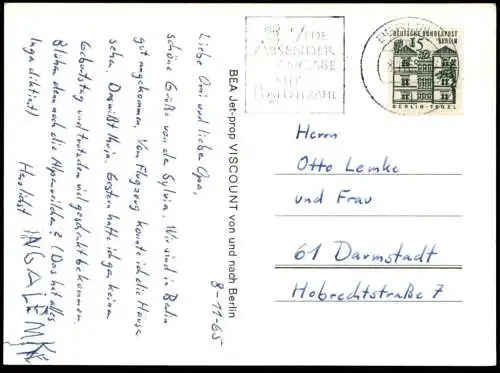 Liebe Omi und lieber Opa,
8-11-65
schöne Grüße von der Sylvia. Wir sind in Berlin
gut angekommen. Vom Flugzeug konnte ich die Häuser
sehen. Gestern hatte ich gar keinen
Geburtstag und trotzdem viel geschenkt bekommen.
Blühen denn noch die Alpenveilchen? (Das hat alles
Inga diktiert)
Herzlichst
INGA LEMKE
BEA Jet-prop VISCOUNT von und nach Berlin
JEDE
ABSENDER
ANGABE
MIT
POSTLEITZAHL
DEUTSCHE BUNDESPOST
BERLIN
15
BERLIN-TEGEL
Herrn
Otto Lemke
und Frau
61 Darmstadt
Hobrechtstraße 7